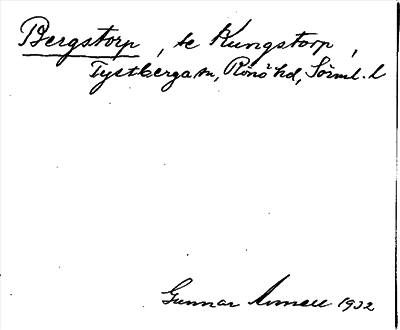 Bergstorp, te Kungstorp,
Tystberga sn, Rönö hd, Sörml. l
Gunnar 1932